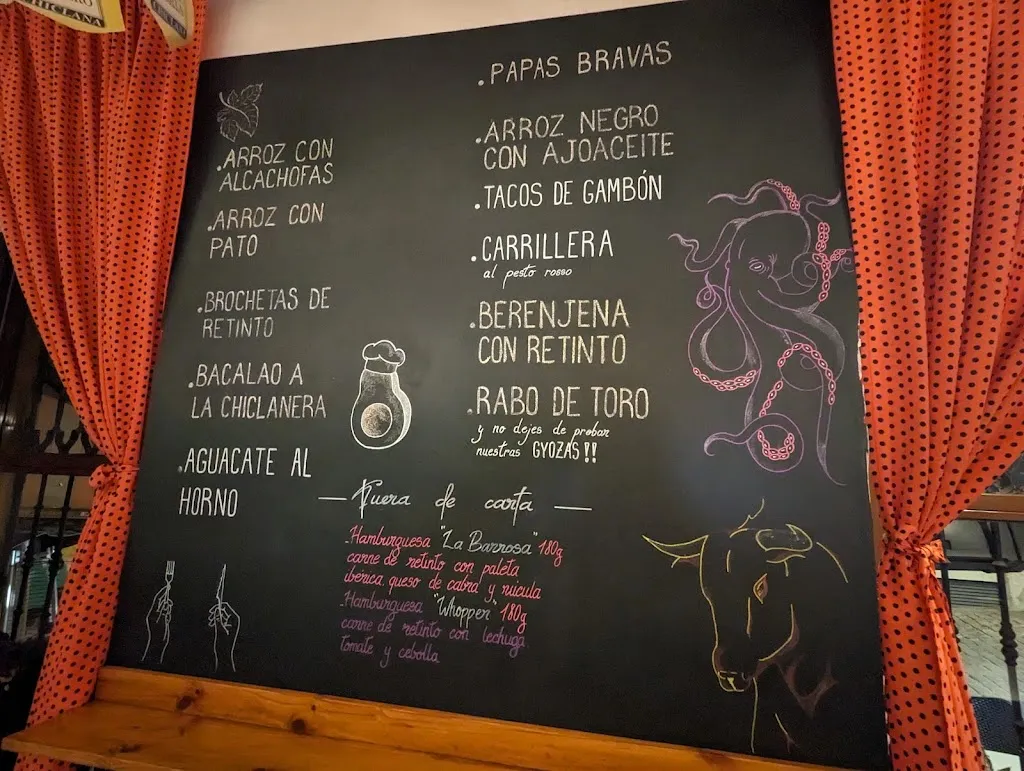 CHICLANA
.ARROZ CON
ALCACHOFAS
.ARROZ CON
PATO
.BROCHETAS DE
RETINTO
.BACALAO A
LA CHICLANERA
.AGUACATE AL
HORNO
.PAPAS BRAVAS
.ARROZ NEGRO
CON AJOACEITE
.TACOS DE GAMBÓN
.CARRILLERA
al pesto rosso
.BERENJENA
CON RETINTO
.RABO DE TORO
y no dejes de probar
nuestras GYOZAS!!
— Fuera de carta —
-Hamburguesa "La Barrosa" 180g
carne de retinto con paleta
ibérica, queso de cabra y rucula
-Hamburguesa "Whopper" 180g
carne de retinto con lechuga,
tomate y cebolla.